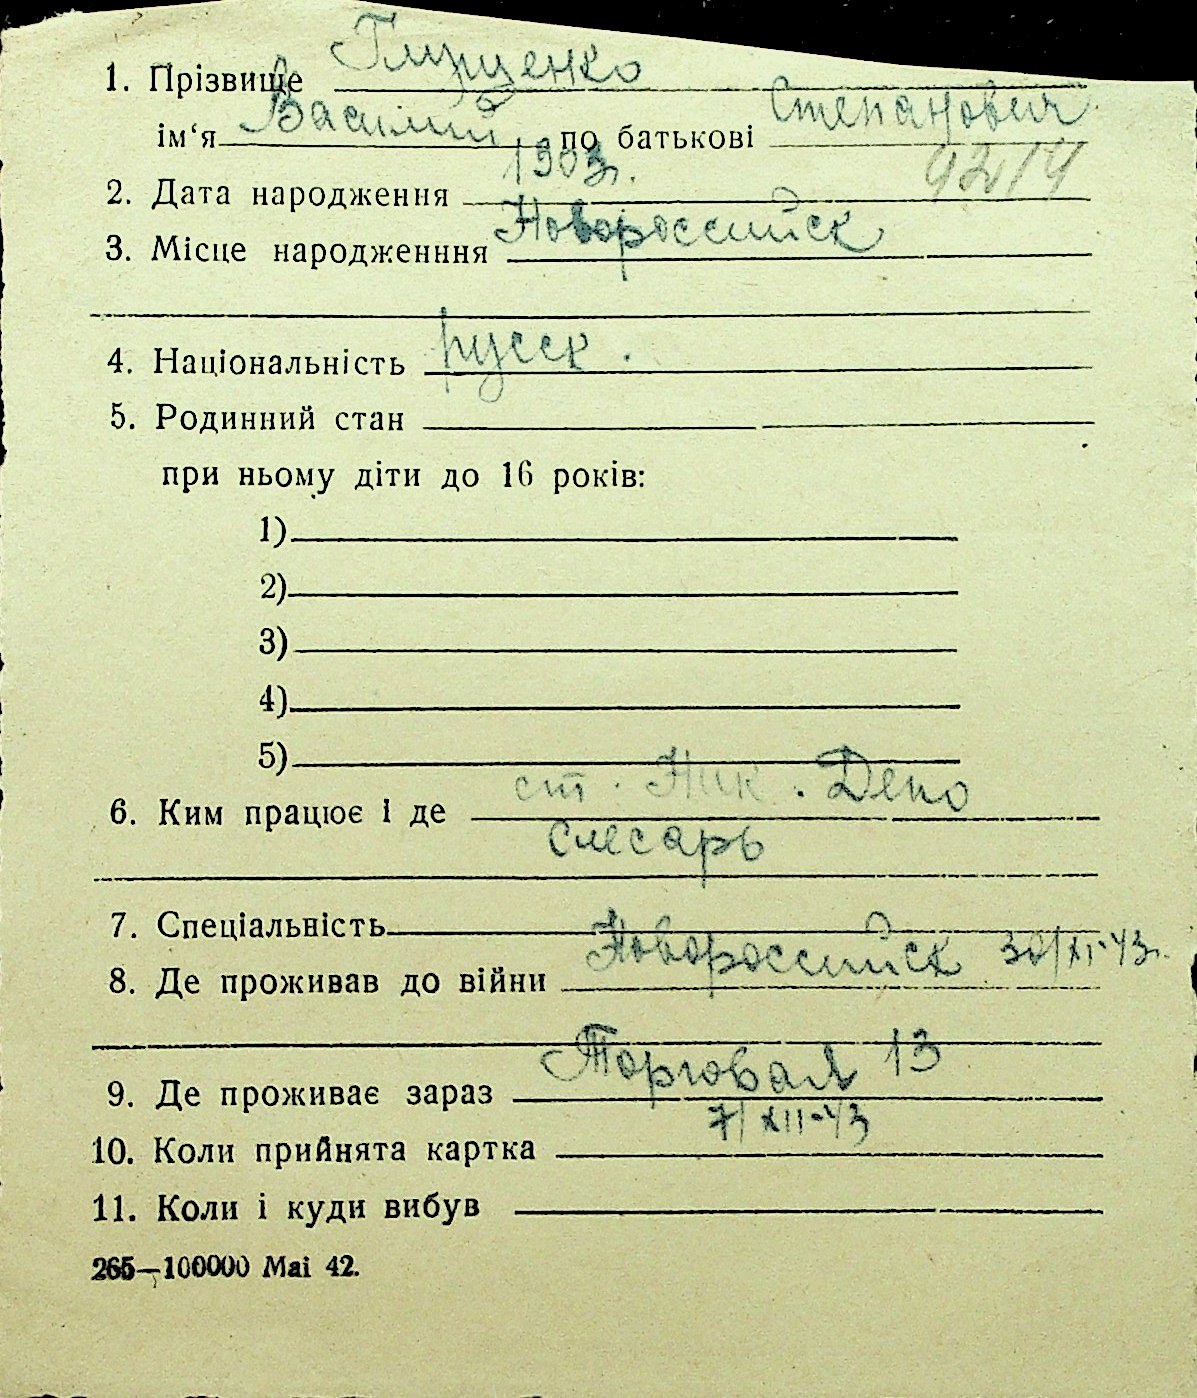 1. Прізвище Глущенко
ім‘я Василий по батькові Степанович
2. Дата народження 1903г. 92114
3. Місце народженння Новороссийск
4. Національність русск.
5. Родинний стан
при ньому діти до 16 років:
1)
2)
3)
4)
5)
6. Ким працює і де ст. Ник. Депо
Слесарь
7. Спеціальність
8. Де проживав до війни Новороссийск 30/XI-43г.
9. Де проживає зараз Торговая 13
10. Коли прийнята картка 7/XII-43
11. Коли і куди вибув
265—100000 Mai 42.